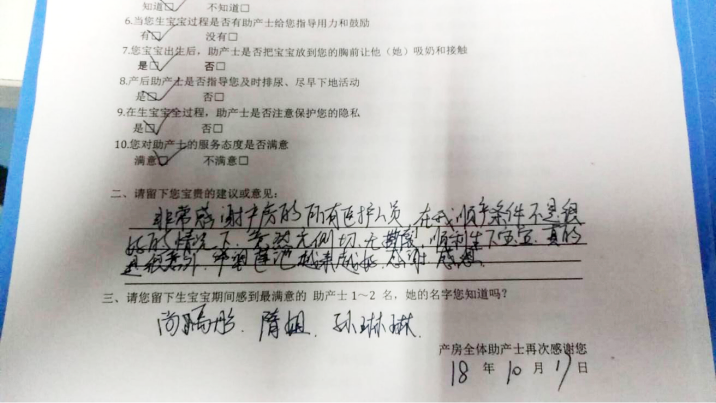 知道□ 不知道□
6.当您生宝宝过程是否有助产士给您指导用力和鼓励
有□ 没有□
7.您宝宝出生后，助产士是否把宝宝放到您的胸前让他（她）吸奶和接触
是□ 否□
8.产后助产士是否指导您及时排尿、尽早下地活动
是□ 否□
9.在生宝宝全过程，助产士是否注意保护您的隐私
是□ 否□
10.您对助产士的服务态度是否满意
满意□ 不满意□
二、请留下您宝贵的建议或意见：
非常感谢产房的所有医护人员，在我顺产条件不是很
好的情况下，竟然无侧切，无撕裂，顺利生下宝宝，真的
是很意外，希望 越来越好，感谢 感恩。
三、请您留下生宝宝期间感到最满意的 助产士 1～2 名，她的名字您知道吗？
尚 隋姐、孙琳琳
产房全体助产士再次感谢您
18 年 10 月 17 日